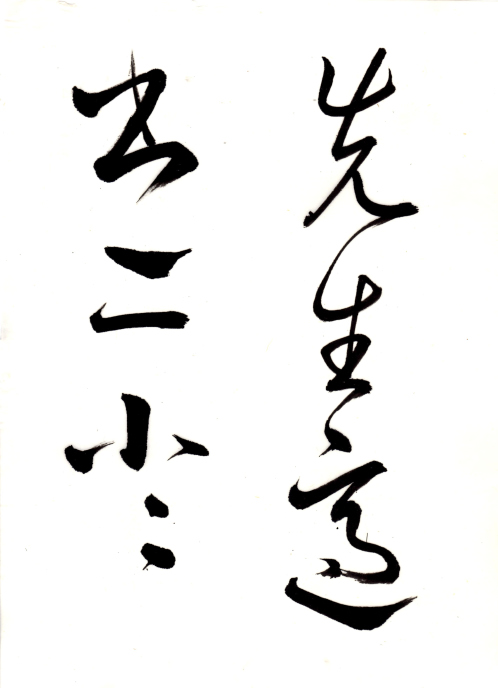 先生適
出二小